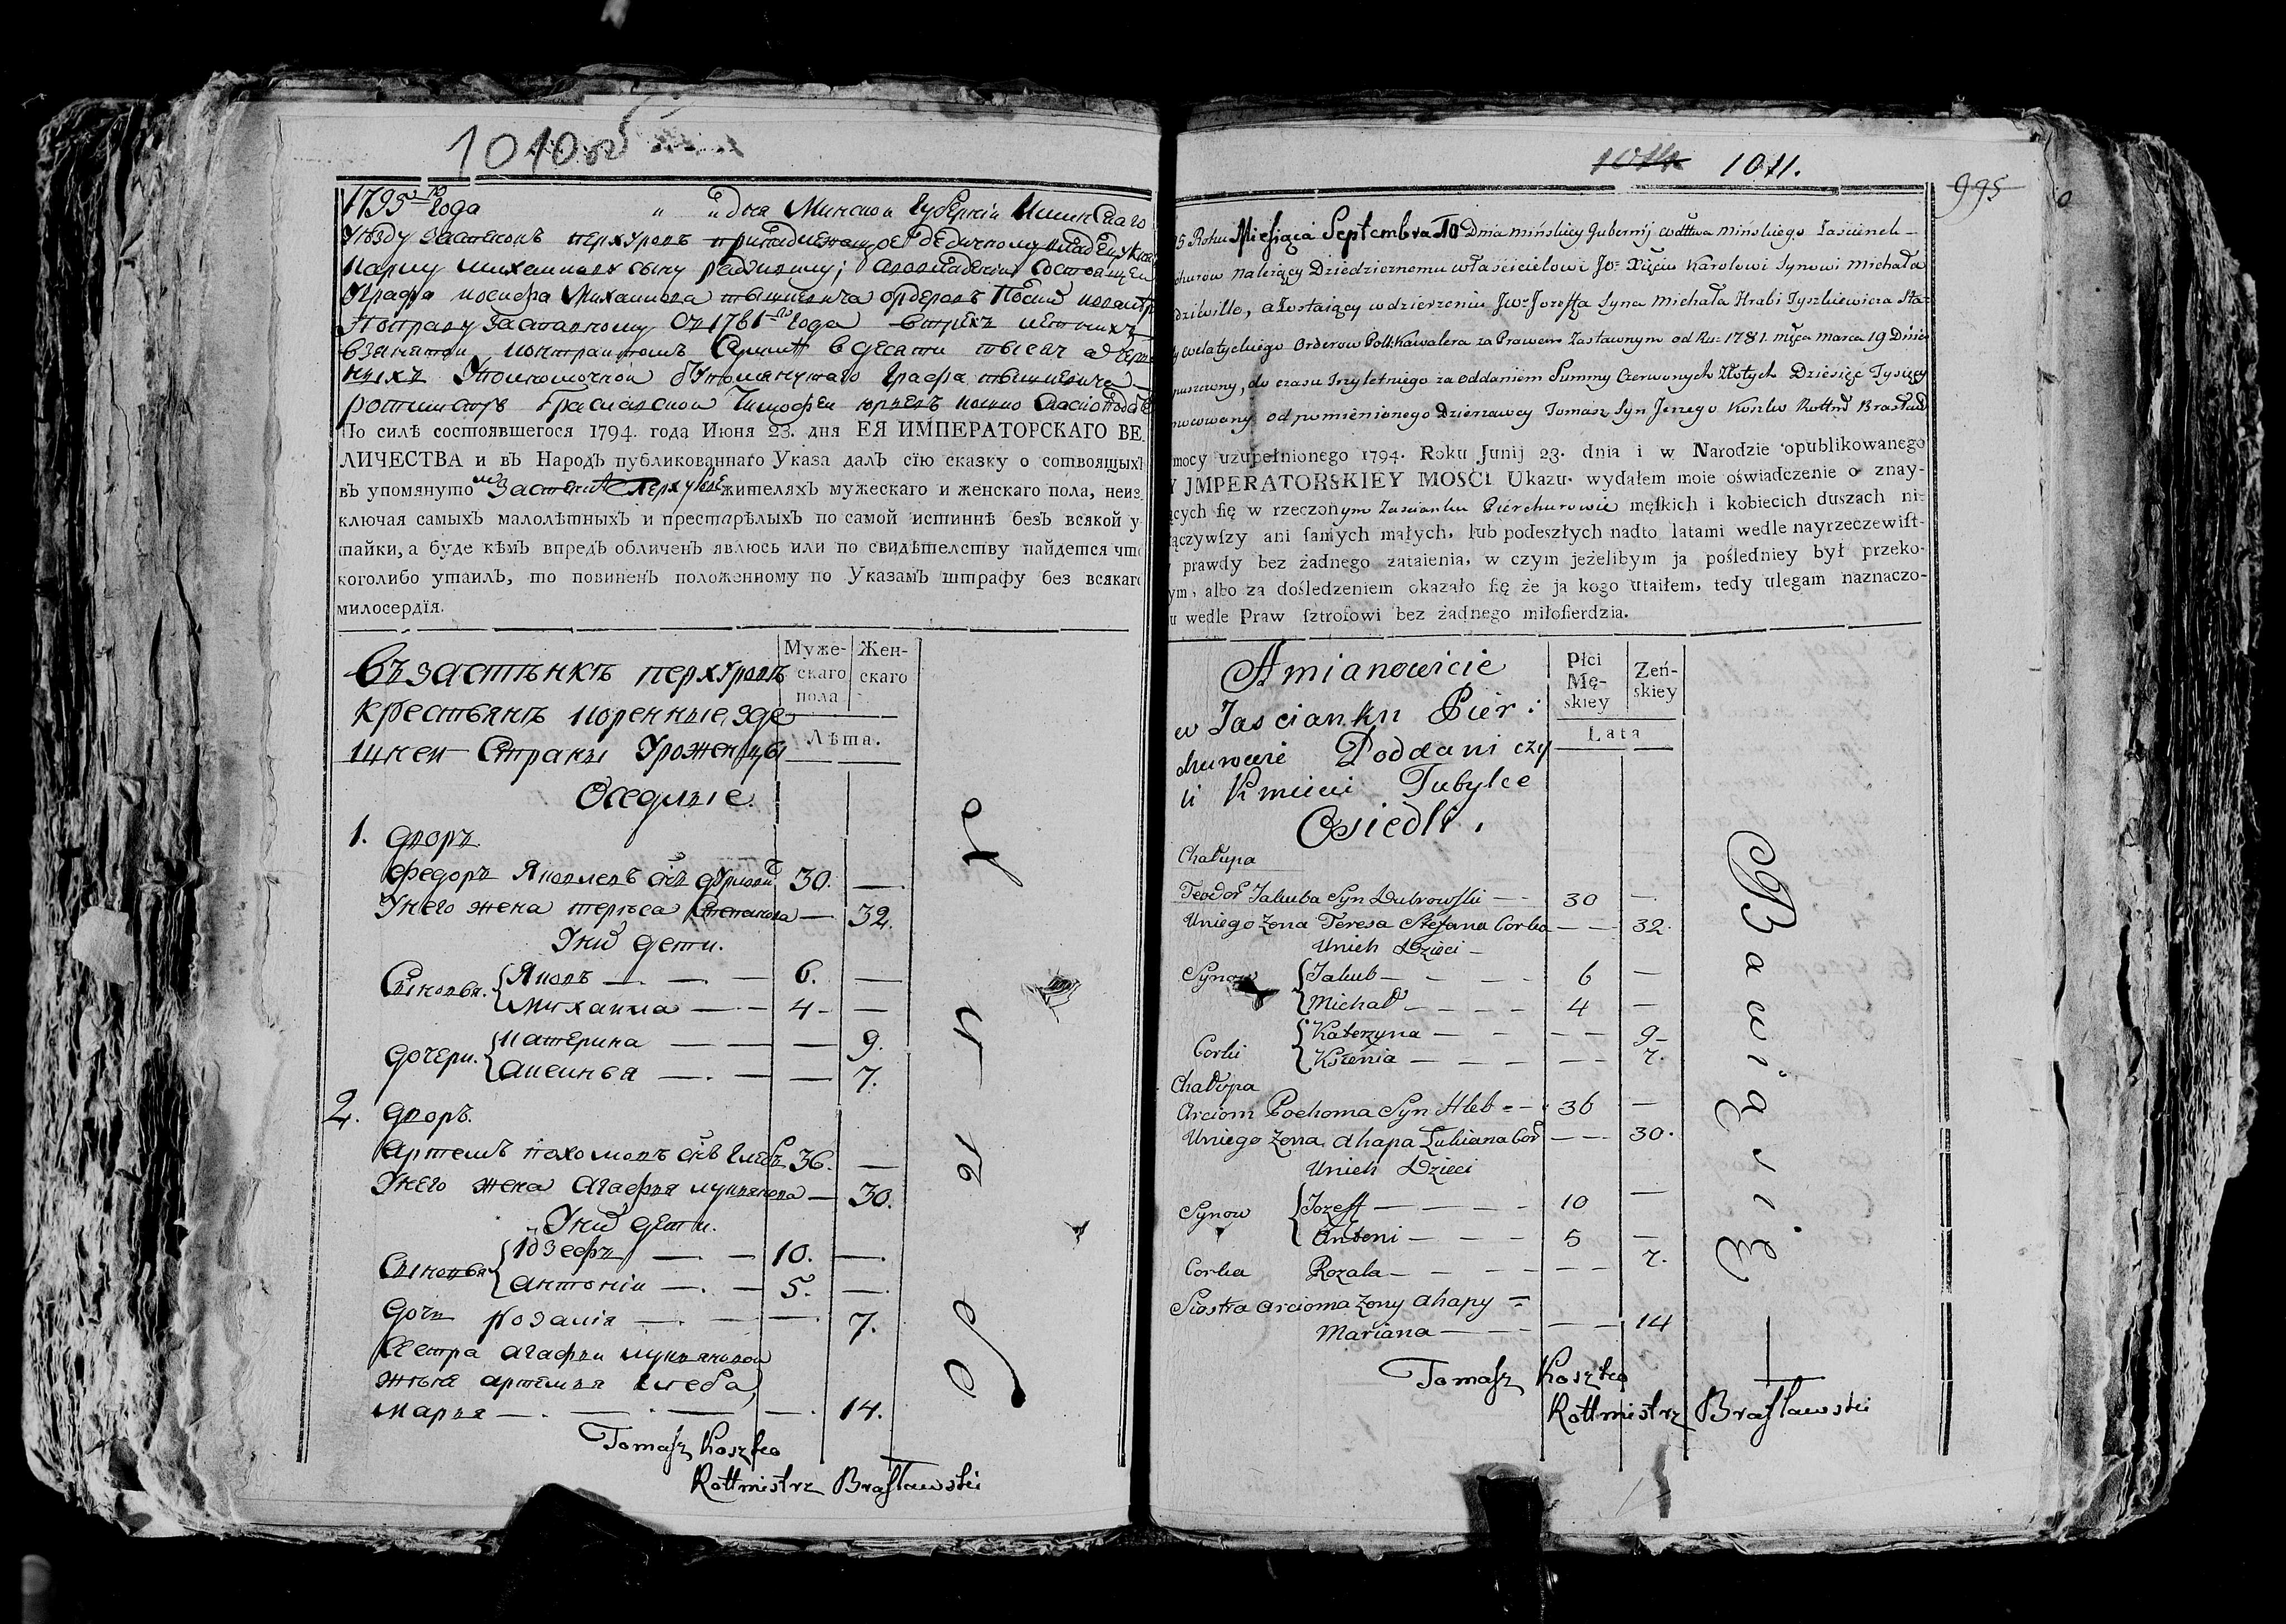 1010 об
1795 го года " " дня Минской губернии Минскаго
уезду застенокъ перхуровъ принадлежащое дедичному владелцу князю
Карлу михаилову сыну радивилу, а во владении состоящем
Графа иосифа Михаилова тышкевича ордеровъ Полск: кавалера
По праву заставному Сп 1781 го года в трехъ летнихъ
взаятой контрактомъ Суммы в десяти тысяч червон
ныхъ Уполномочной от упомянутаго Графа тышкевича
ротмистръ Браславской Тимофеи юрьевъ кошко
По силѣ состоявшегося 1794. года Июня 23. дня ЕЯ ИМПЕРАТОРСКАГО ВЕ-
ЛИЧЕСТВА и въ Народъ публикованнаго Указа далъ сїю сказку о сотвоящыхъ
въ упомянутомъ Застенке Перхурове жителяхъ мужескаго и женскаго пола, неиз-
ключая самыхъ малолѣтныхъ и престарѣлыхъ по самой истиннѣ безъ всякой у-
тайки, а буде кѣмъ впредь обличенъ явлюсь или по свидѣтелству найдется что
коголибо утаилъ, то повиненъ положенному по Указамъ штрафу без всякаго
милосердїя.
Муже- Жен-
скаго скаго
пола
Лѣта.
Въ застѣнкѣ перхуровѣ
крестьянъ коренные, зде
шнеи Страны Уроженцы
Оседлые.
1. дворъ
Федоръ Яковлевъ снъ дубровский 30. —
У него жена тереса Степанова — 32.
У них дети.
Сыновья. { Яковъ — — 6. —
Михаила — — 4 — —
дочери. { Катерина — — — 9.
Аксинья — — — 7.
2. дворъ.
Артемъ пахомовъ снъ Глебъ 36. —
У него жена Агафья лукьянова — 30.
У них дети.
Сыновья { Iозефъ — — 10. —
Антоніи — — 5. —
дочь розалія — — — 7.
Сестра агафьи лукьяновой
жены артемья Глеба,
марья — — — — 14.
Tomasz Koszko
Rottmistrz Brasławski
1011.
995
95 Roku Miesiąca Septembra 10 Dnia mińskiey Gubernij wodztwa mińskiego Zaścienek
churow należący Dziedzicznemu właścicielowi Jo: Xięciu Karolowi Synowi Michała
dziwille, a zostaiący w dzierżeniu Jw: Jozeffa Syna Michała Hrabi Tyszkiewicza Sta:
y welatyckiego Orderow Polk: Kawalera za Prawem Zastawnym od Ru: 1781. mca marca 19 Dnia
puszczony, do czasu Trzyletniego za oddaniem Summy Czerwonych Złotych Dziesięć Tysięcy
mocowany od pomienionego Dzierżawcy Tomasz Syn Jerzego Koszko Rottm: Brasław
mocy uzupełnionego 1794. Roku Junij 23. dnia i w Narodzie opublikowanego
Y JMPERATORSKIEY MOSCI Ukazu. wydałem moie oświadczenie o znay-
ących się w rzeczonym Zascianku Pierchurowie męskich i kobiecich duszach ni-
łączywszy ani samych małych, lub podeszłych nadto latami wedle nayrzeczewist-
prawdy bez żadnego zataienia, w czym jeżelibym ja posledniey był przeko-
ym, albo za dosledzeniem okazało się że ja kogo utaiłem, tedy ulegam naznaczo-
u wedle Praw sztrofowi bez żadnego miłosierdzia.
Płci Zeń-
Mę- skiey
skiey
Lata
Amianowicie
w Zascianku Pier:
churowie Poddani czy
li Kmieci Tubylce
Osiedli.
Chałupa
Teodor Jakuba Syn Dubrowski — — 30 —
U niego Żona Teresa Stefana Corka — — 32.
U nich Dzieci —
Synow { Jakub — — — 6 —
Michał — — — 4 —
Corki { Katerzyna — — — 9 —
Ksienia — — — 7.
Chałupa
Arciom Pochoma Syn Hleb — 36 —
U niego Żona Ahapa Łukiana Cor — — 30.
U nich Dzieci
Synow { Jozeff — — — 10 —
Antoni — — — 5 —
Corka Rozala — — — — 7.
Siostra Arcioma Żony Ahapy =
Mariana — — — — 14
Tomasz Koszko
Rottmistrz Brasławski